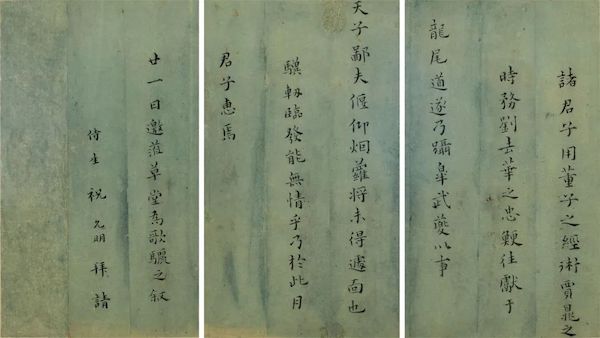 諸君子用董子之經術賈晁之
時務劉去華之忠鯁往獻于
龍尾道遂乃躡皋武夔以事
天子鄙夫偃仰烟蘿將未得遽面也
驥軔臨發能無情乎乃於此月
君子惠焉
廿一日邀蒞草堂為歌驪之叙
侍生祝允明拜請